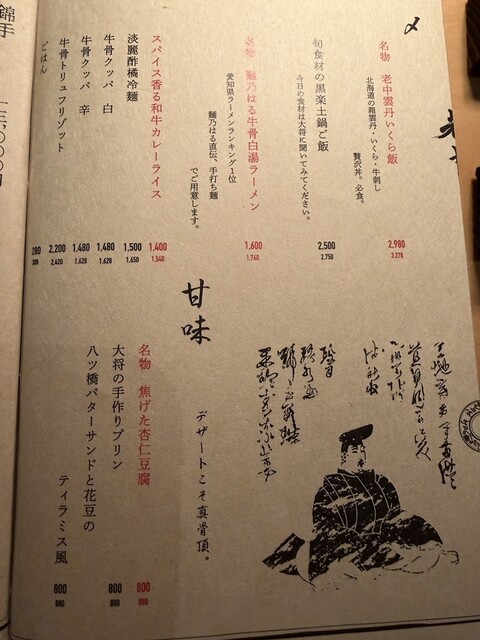 〆
名物 老中雲丹いくら飯
北海道の箱雲丹・いくら・牛刺し
贅沢丼。必食。
2,980
3,278
旬食材の黒楽土鍋ご飯
今日の食材は大将に聞いてみてください。
2,500
2,750
名物 麺乃はる牛骨白湯ラーメン
愛知県ラーメンランキング1位
麺乃はる直伝、手打ち麺
でご用意します。
1,600
1,760
スパイス香る和牛カレーライス
1,400
1,540
淡麗酢橘冷麺
1,500
1,650
牛骨クッパ 白
1,480
1,628
牛骨クッパ 辛
1,480
1,628
牛骨トリュフリゾット
2,200
2,420
ごはん
280
308
甘味
デザートこそ真骨頂。
名物 焦げた杏仁豆腐
800
880
大将の手作りプリン
800
880
八ツ橋バターサンドと花豆の
ティラミス風
800
880
錦手